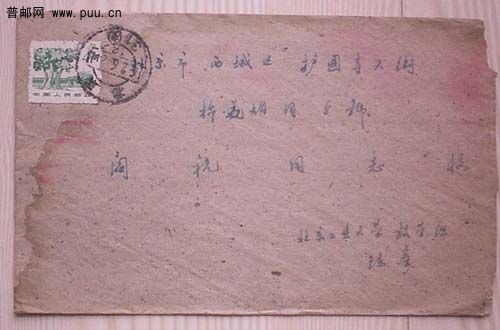 普邮网
www.puu.cn
中国人民邮政
北京市 西城区 护国寺大街
棉花胡同 5 號
阎 祝 同 志 收
北京工业大学 教学组